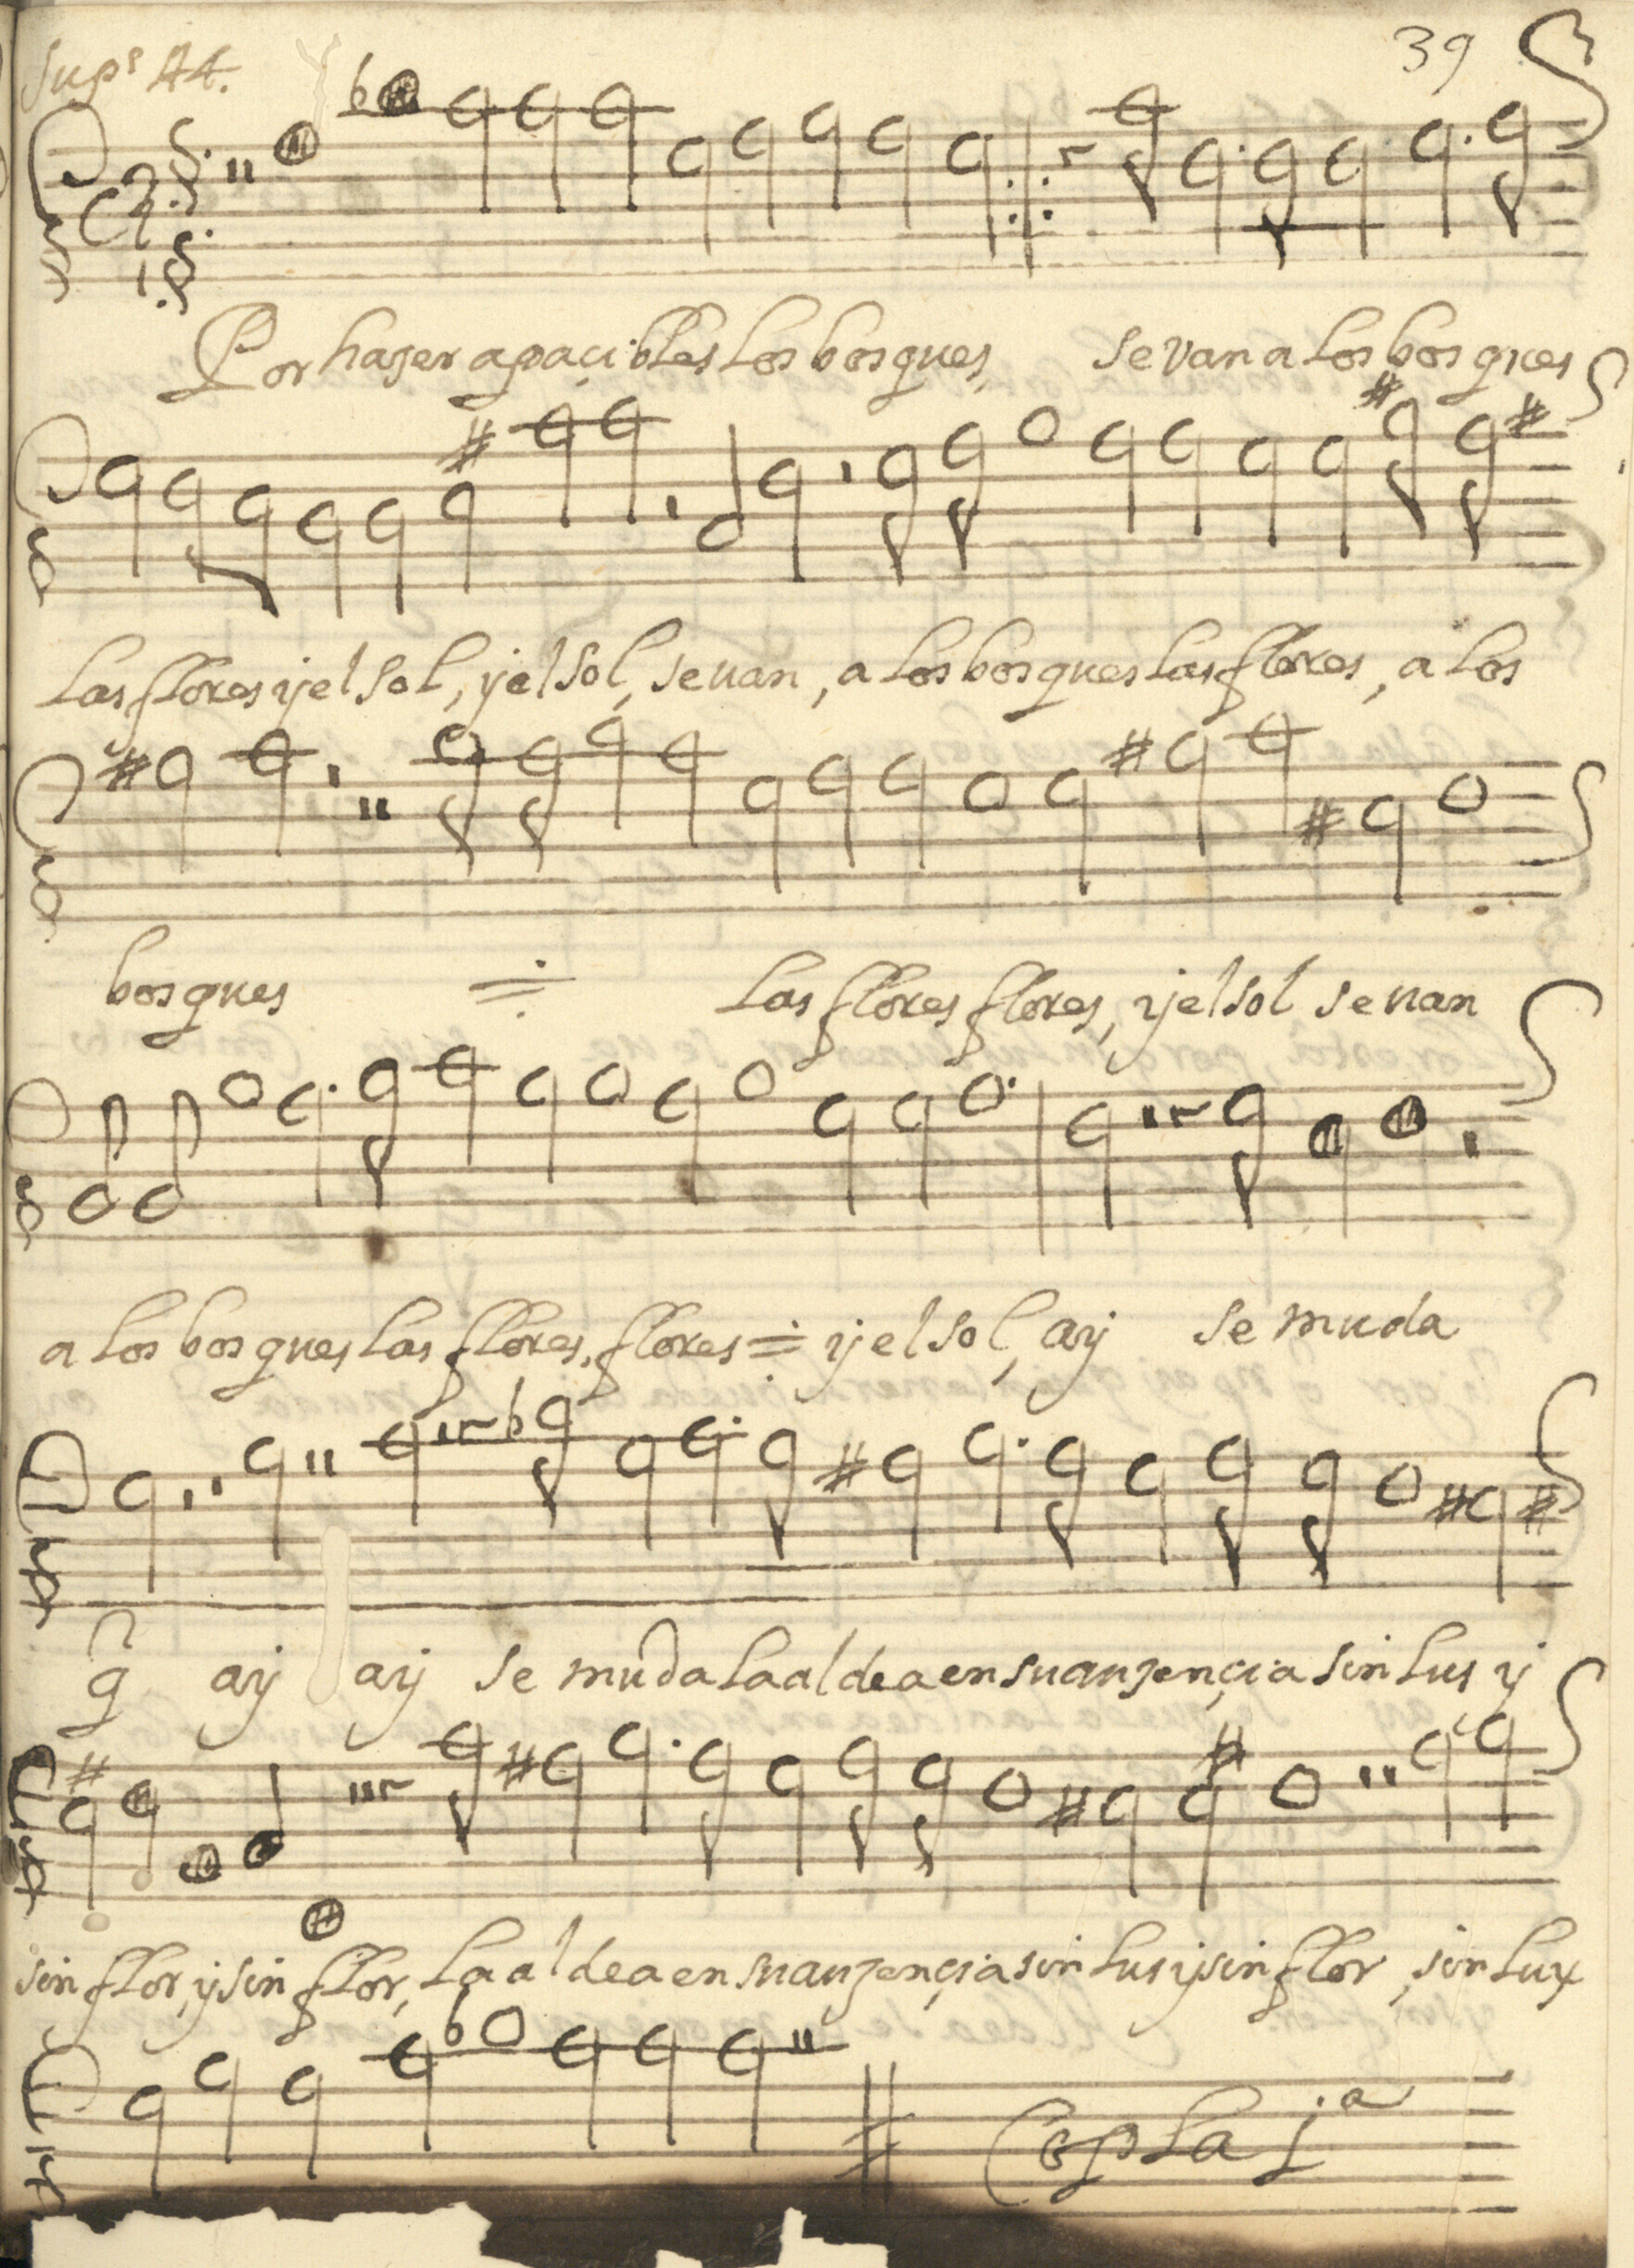 Supˢ A4. 39
Por haser apaçibles los bosques, se van a los bosques
las flores y el sol, y el sol, se uan, a los bosques las flores, a los
bosques ≐ las flores flores, y el sol se uan
a los bosques las flores, flores ≐ y el sol, ay se muda
q̃ ay ay se muda la aldea en su auzençia sin lus y
sin flor, y sin flor, la aldea en su auzençia sin lus y sin flor, sin lux
Copla jᵃ